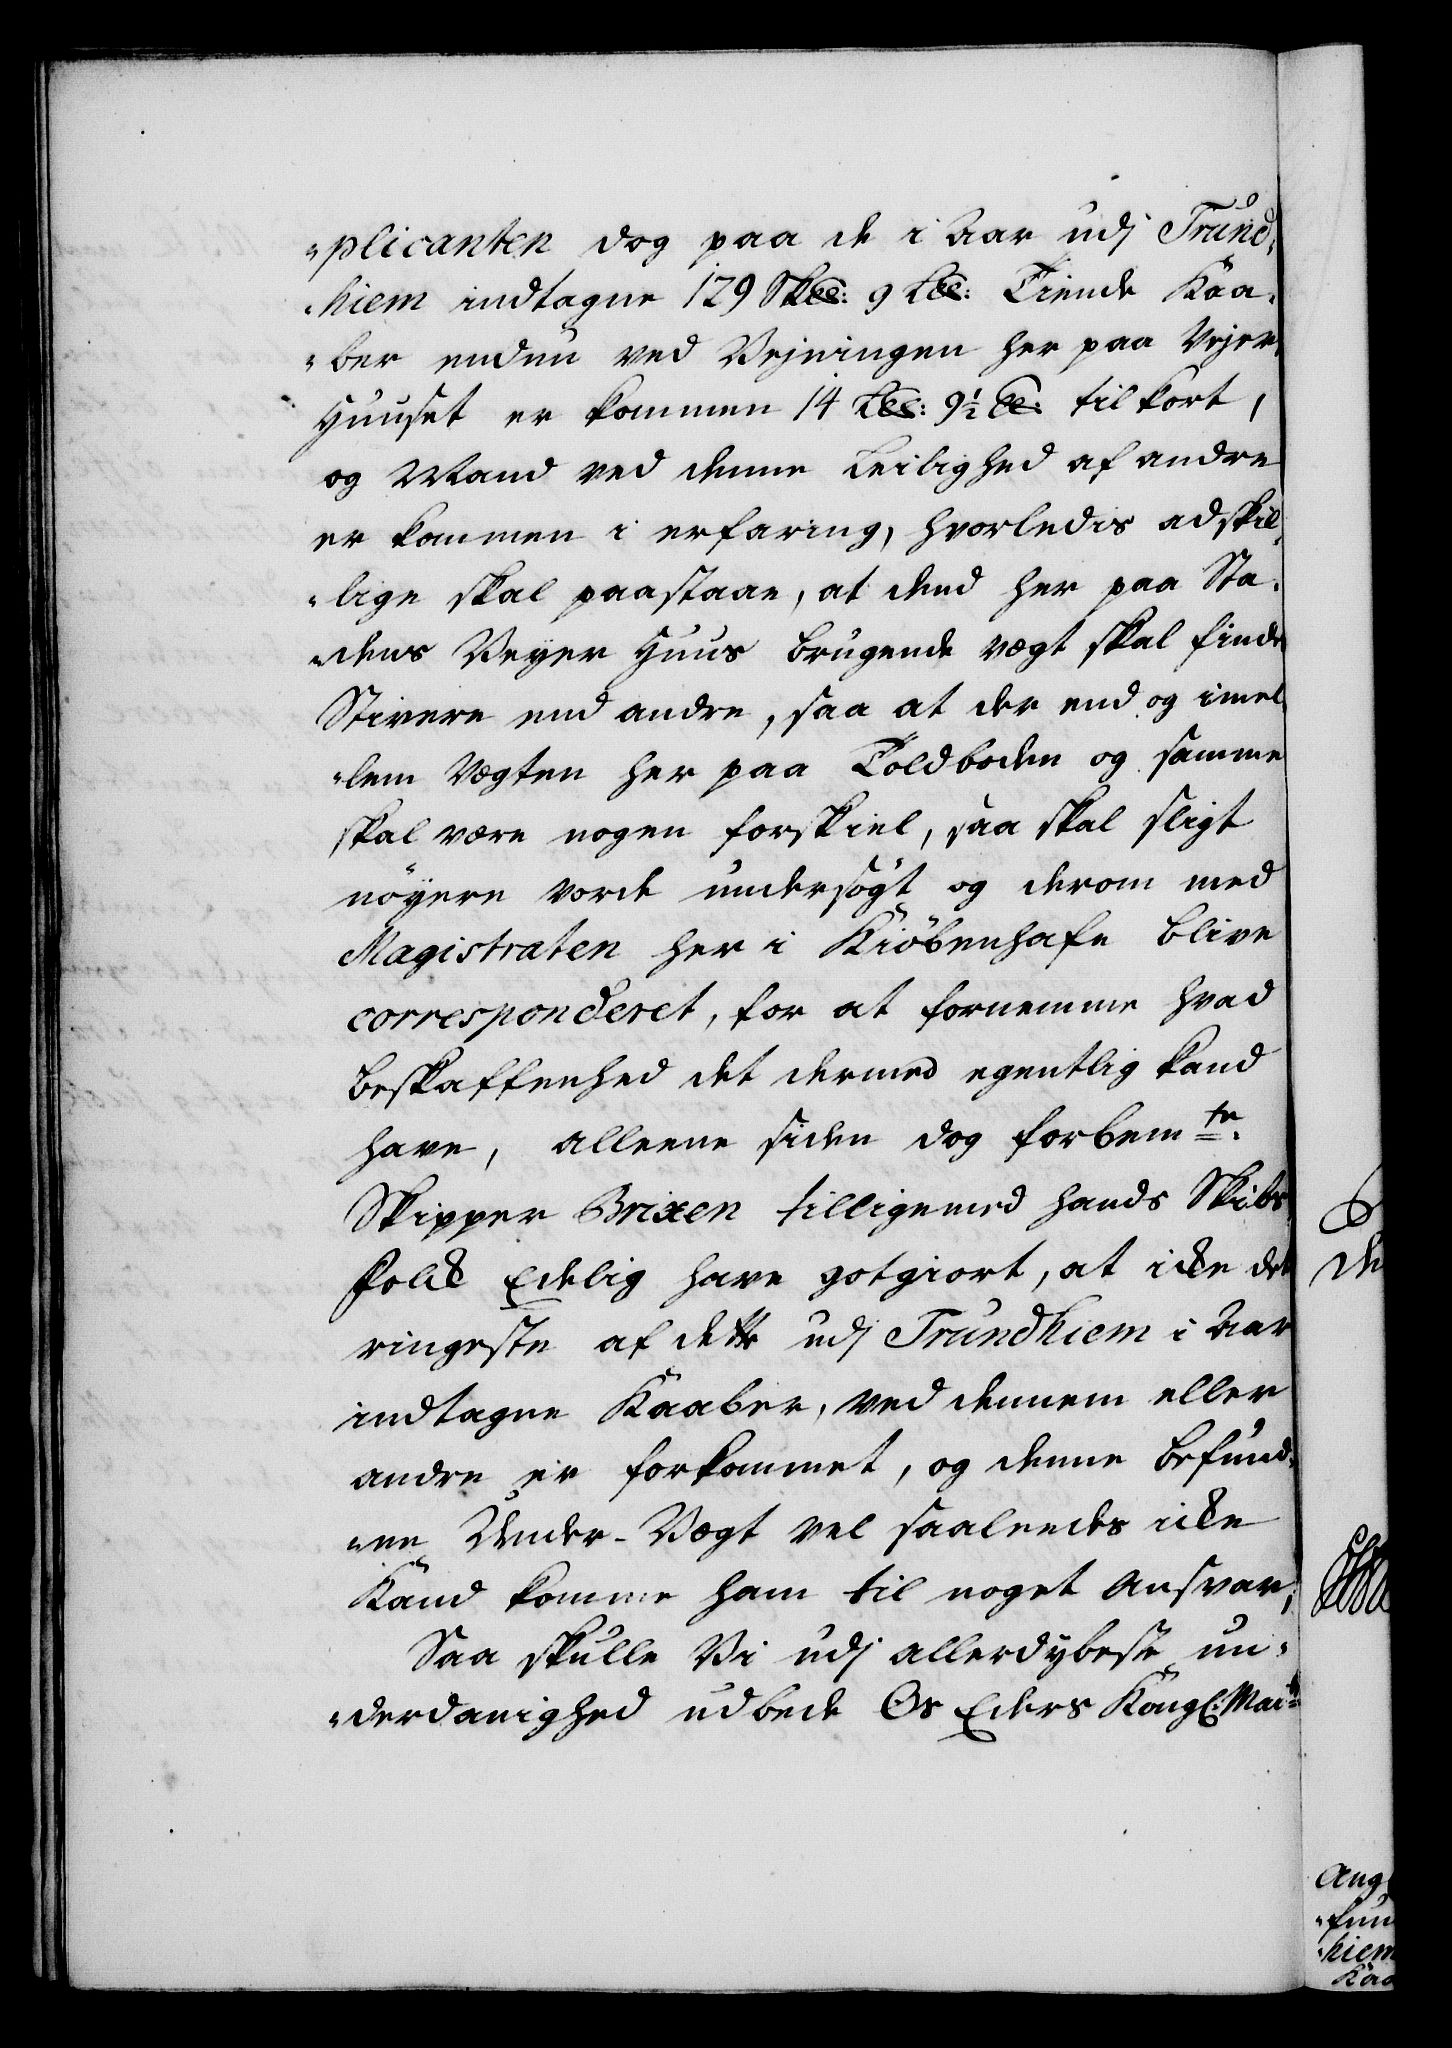 "plicanten dog paa de i Aar udj Trund¬
"hiem indtagne 129 Sk℔: 9 L℔: Tiende Kaa¬
"ber endnu ved Vejningen her paa Vejer¬
Huuset er kommen 14 L℔: 9½ ℔: til kort,
og Mand ved denne Leilighed af andre
er kommen i erfaring, hvorledis adskil¬
"lige skal paastaae, at dend her paa Sta¬
"dens Veyer Huus brugende vægt skal finde
Stivere end andre, saa at der end og imel¬
"lem Vegten her paa Toldboden og samme
skal være nogen forskiel, saa skal sligt
nöyere vorde undersögt og derom med
Magistraten her i Kiöbenhafn blive
corresponderet, for at fornemme hvad
beskaffenhed det dermed egentlig kand
have, alleene siden dog forbemte
Skipper Brixen tilligemed hands Skibs
Folck Edelig have gotgiort, at icke det
ringeste af dette udj Trundhiem i Aar
indtagne Kaaber, ved dennem eller
andre er forkommet, og denne befund¬
"ne Under-Vegt vel saaleedes icke
Kand komme ham til noget Ansvar;
Saa skulle Vi udj allerdybeste un¬
"derdanighed udbede Os Eders Kongl: Maits
De
Ang
"fun
"hiem
Kaa